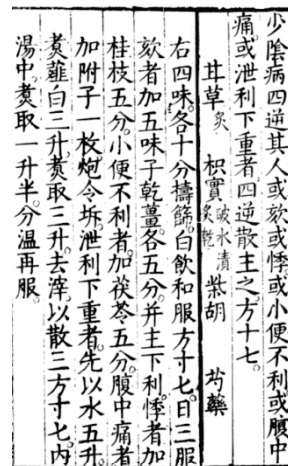 少陰病四逆其人或欬或悸或小便不利或腹中
痛或泄利下重者四逆散主之方十七。
甘草炙 枳實破水漬炙乾 柴胡 芍藥
右四味各十分擣篩白飲和服方寸匕日三服
欬者加五味子乾薑各五分并主下利悸者加
桂枝五分小便不利者加茯苓五分腹中痛者
加附子一枚炮令坼泄利下重者先以水五升
煑薤白三升煑取三升去滓以散三方寸匕內
湯中煑取一升半分溫再服